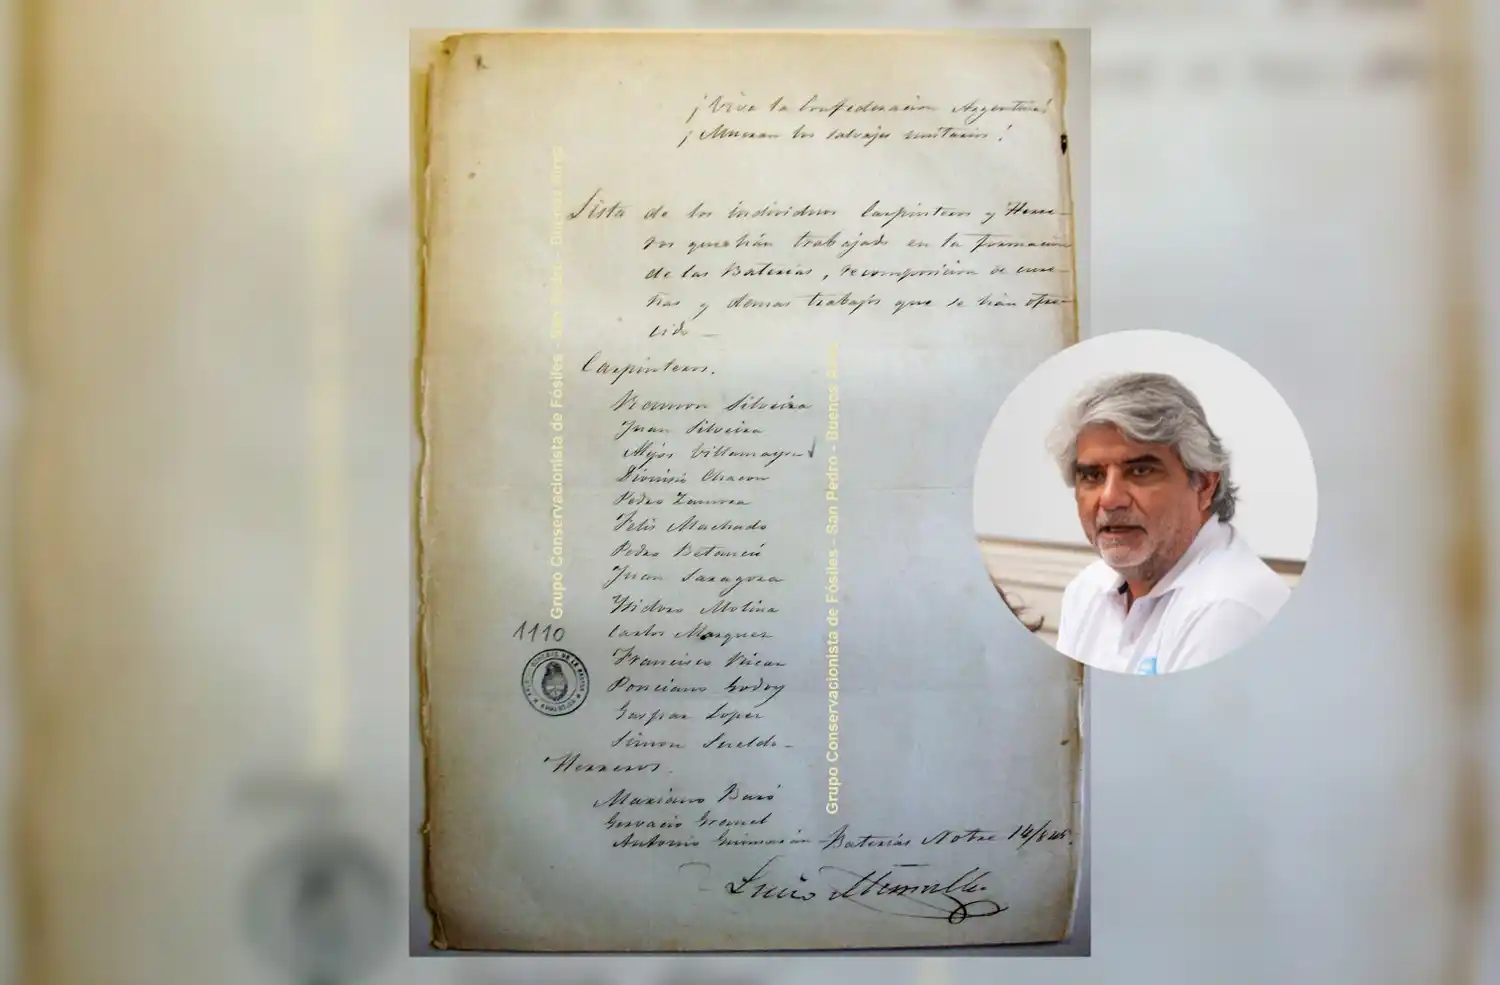 ¡Viva la Confederacion Argentina!
¡Mueran los salvajes unitarios!
Lista de los individuos Carpinteros y Herre-
ros que han trabajado en la formacion
de las Baterias, recomposicion de cure-
ñas y demas trabajos que se han ofre-
cido —
Carpinteros.
Ramon Silveira
Juan Silveira
Villamayor
Dionisio Chacon
Pedro Zamora
Felis Machado
Pedro Betancú
Juan Saragoza
Ysidoro Molina
Carlos Marquez
Francisco
Ponciano Godoy
Gaspar Lopez
Simon
1110
Herreros.
Mariano
Gervacio
Antonio Baterias Nobre 14/845.
Lucio
Grupo Conservacionista de Fósiles - San Pedro - Buenos Aires
Grupo Conservacionista de Fósiles - San Pedro - Buenos Aires